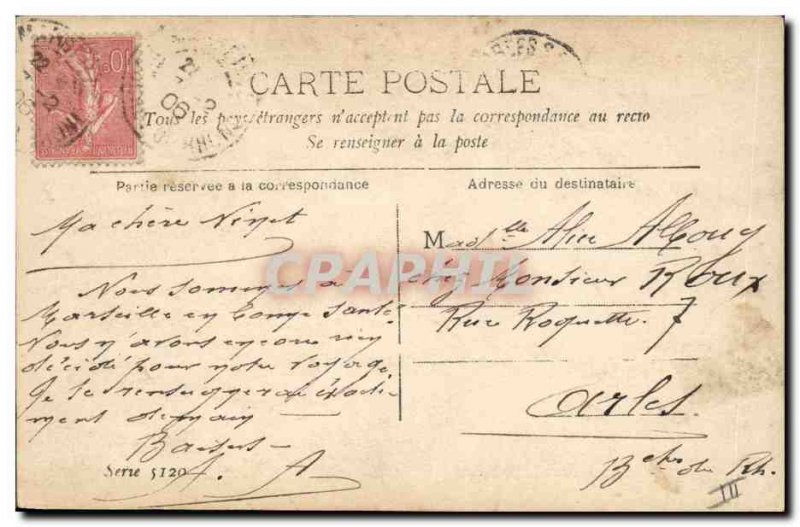 CARTE POSTALE
Tous les pays étrangers n'acceptent pas la correspondance au recto
Se renseigner à la poste
Partie réservée a la correspondance
Adresse du destinataire
Ma chère Ninet
Nous sommes à
Marseille en bonne santé
Nous n'avons encore rien
décidé pour notre voyage
Je te
ment demain
Baisers
A. A
Serie 5120
Madelle Alice Albouy
chez Monsieur Roux
Rue Roquette 7
Arles
Bches du Rh.
III
CPAPHIL
10
06